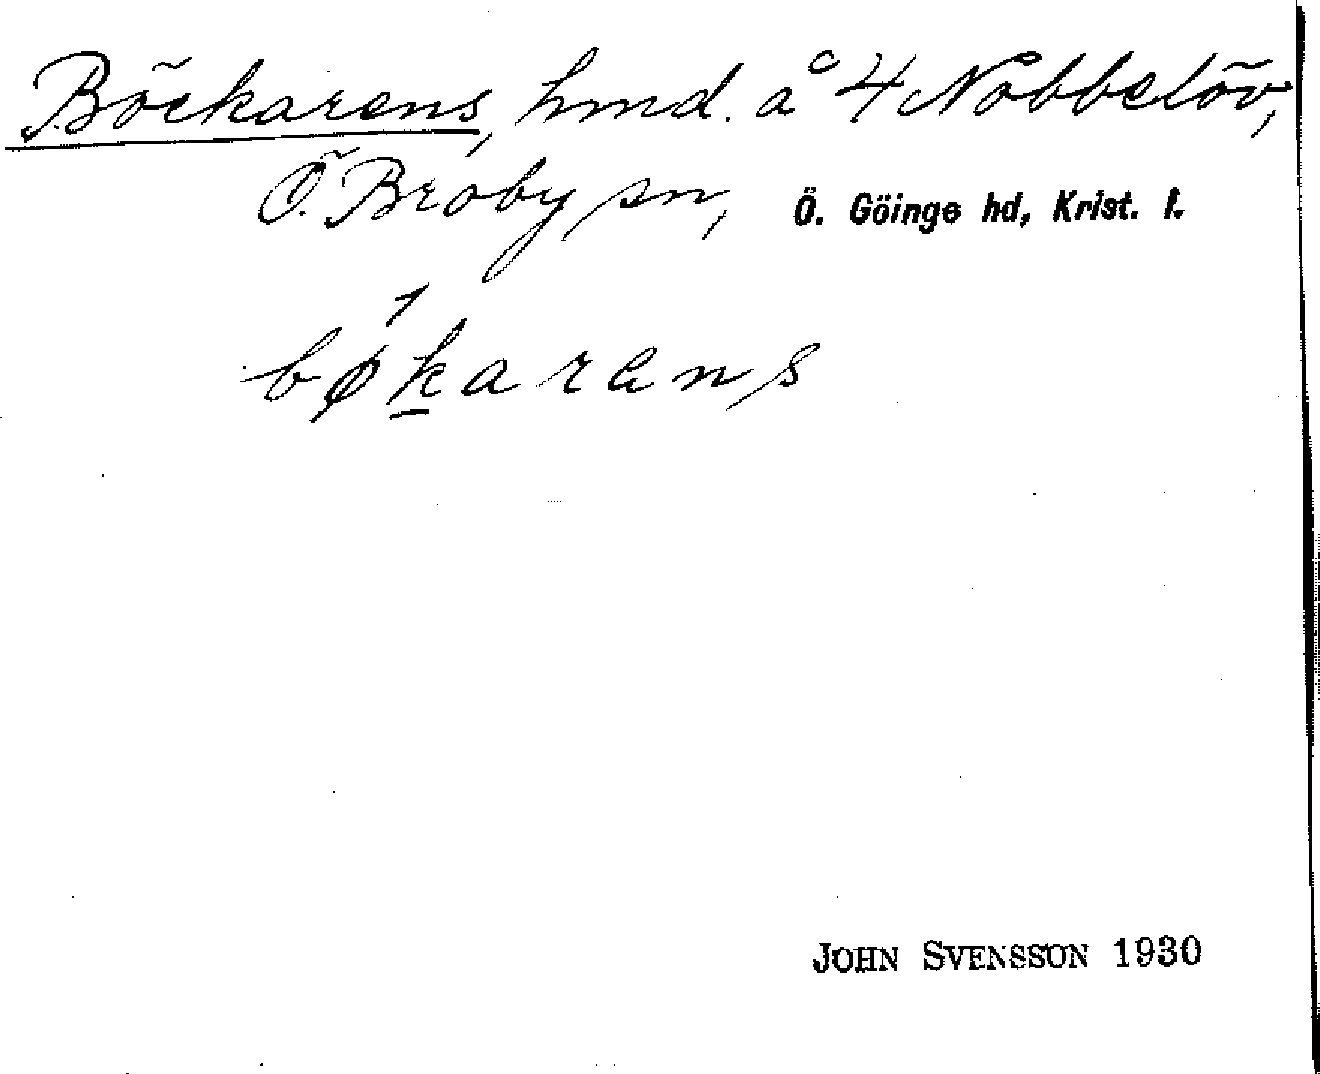 Böckarens, hmd. å 4 Nobbelöv,
Ö. Broby sn, Ö. Göinge hd, Krist. l.
bøkarens
JOHN SVENSSON 1930